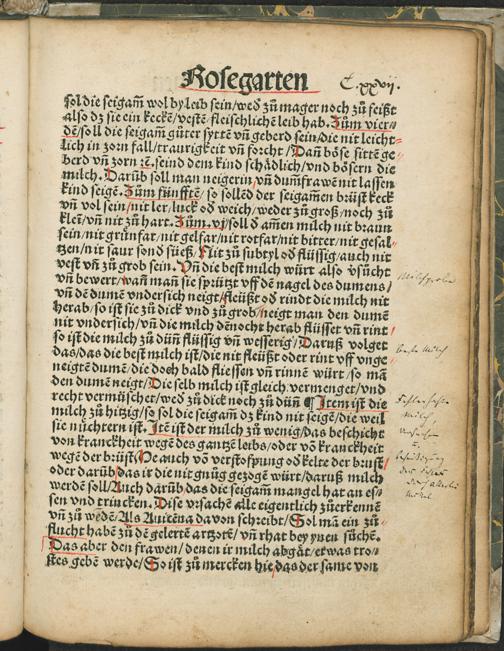 Rosegarten
C.xxvij.
sol die seigam̄ wol by leib sein/wed̄ zů mager noch zů feißt
also dz sie ein kecke/veste fleischliche leib hab. Zům vier⸗
dē/soll die seigam̄ gůter syttē vn̄ geberd sein/die nit leicht⸗
lich in zorn fall/traurigkeit vn̄ forcht/Dan̄ böse sitte ge⸗
berd vn̄ zorn ꝛc. seind dem kind schädlich/vnd bösern die
milch. Darūb soll man neigerin/vn̄ dun̄frawē nit lassen
kind seigē. Zům fünfftē/so sollēd der seigam̄en brüst keck
vn̄ vol sein/nit ler/luck od̄ weich/weder zů groß/noch zů
klein/vn̄ nit zů hart. Zům.vj/soll d̄ am̄en milch nit braun
sein/nit grünfar/nit gelfar/nit rotfar/nit bitter/nit gesal⸗
tzen/nit saur sond̄ süeß/Nit zů subtyl od̄ flüssig/auch nit
vest vn̄ zů grob sein. Vn̄ die best milch würt also v̄sůcht
vn̄ bewert/wan̄ man sie sprützt vff dē nagel des dumens/
vn̄ dē dumē vndersich neigt/fleüßt od̄ rindt die milch nit
herab/so ist sie zů dick vnd zů grob/neigt man den dumē
nit vndersich/vn̄ die milch dēnocht herab flüsset vn̄ rint/
so ist die milch zů dün̄ flüssig vn̄ wesserig/Daruß volget
das/das die best milch ist/die nit fleüßt oder rint vff vnge⸗
neigtē dumē/die doch bald fliessen vn̄ rinnē würt/so mā
den dumē neigt/Die selb milch ist gleich vermenget/vnd
recht vermüschet/wed̄ zů dick noch zů dün̄ ¶ Item ist die
milch zů hitzig/so sol die seigam̄ dz kind nit seigē/die weil
sie nüchtern ist. Itē ist der milch zů wenig/das beschicht
von kranckheit wegē des gantzē leibs/oder vō kranckheit
wegē der brüst/Oder auch vō verstopfung od̄ kelte der brust
oder darūb das ir die nit gnůg gezogē würt/daruß milch
werdē soll/Auch darūb das die seigam̄ mangel hat an es⸗
sen vnd trincken. Dise vrsachē alle eigentlich zůerkennē
vn̄ zů wedē/Als Auicēna davon schreibt/Sol mā ein zů⸗
flucht habē zů dē gelertē artzotē/vn̄ rhat bey ynen sůchē.
Das aber den frawen/denen ir milch abgāt/etwas tro⸗
stes gebē werde/So ist zů mercken hie/das der same von